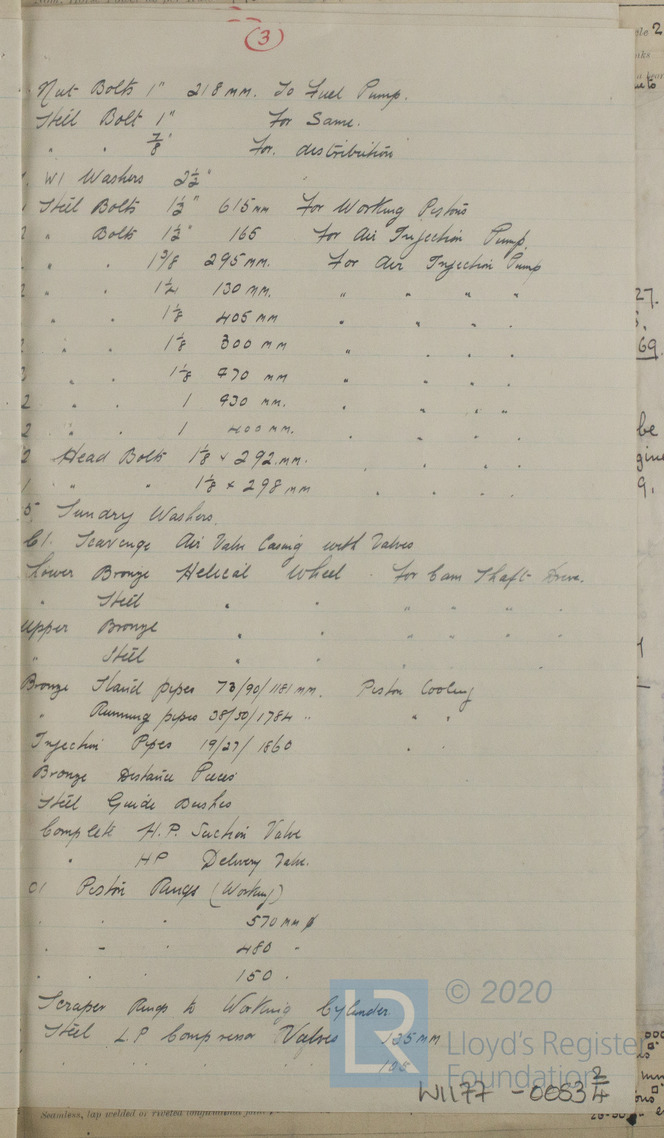 (3)
Nut Bolts 1" 218 mm. To Fuel Pump.
Steel Bolt 1" For Same.
" " 7/8" For distribution
WI Washers 2 1/2"
Steel Bolts 1 1/2" 615 mm For Working Pistons
" Bolts 1 1/2" 165 For Air Injection Pump.
" " 1 3/8 295 mm. For Air Injection Pump
2 " " 1 1/4 130 mm. " " " "
" " 1 1/8 405 mm " " " "
2 " " 1 1/8 300 mm " " " "
" " 1 1/8 470 mm " " " "
2 " " 1 430 mm. " " " "
2 " " 1 400 mm. " " " "
2 Head Bolts 1 1/8 x 292 mm. " " " "
1 " " 1 1/8 x 298 mm " " " "
5 Sundry Washers.
C.I. Scavenge Air Valve Casing with Valves
Lower Bronze Helical Wheel. For Cam Shaft Drive.
" Steel " " " " " "
Upper Bronze " " " " " "
" Steel " " " "
Bronze Stand pipes 73/90/1181 mm. Piston Cooling
" Running pipes 38/50/1784 " " "
Injection Pipes 19/27/1860 " "
Bronze Distance Pieces
Steel Guide Bushes
Complete H.P. Suction Valve
" HP Delivery Valve.
CI Piston Rings (Working)
" " " 570 mm ø
" " " 480 "
" " " 150 "
Scraper Rings to Working Cylinder.
Steel LP Compressor Valves 135 mm
" " " " 105
© 2020
LR
Lloyd's Register
Foundation
W1177-0053 2/4
Seamless, lap welded or riveted longitudinal joint
27.
69
be
9.